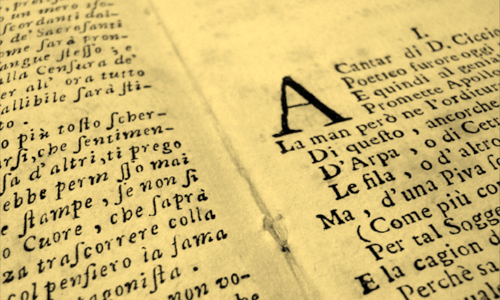 un mero iſo-
ſcordanti dal-
de' Sacroſanti
ome ſarà pron-
angue ſteſſo, e
alla Cenſura de'
er all' ora tutto
fallibile ſarà ſti-
to.
o più toſto ſcher-
arſi, che ſentimen-
ſa d'altri, ti prego
ebbe perm ſſo mai
e ſtampe, ſe non ſi
o Cuore, che ſaprà
za traſcorrere colla
col penſiero la fama
otagoniſta.
non vo-
I.
A Cantar di D. Ciccio
Poetico furore oggi
E quindi al genio
Promette Apollo
La man però ne l'orditura
Di queſto, ancorche
D'Arpa, o di Cet
Le fila, o d'altro
Ma, d'una Piva ſ
(Come più co
Per tal Sogg
E la cagion d
Perchè ſa
qual